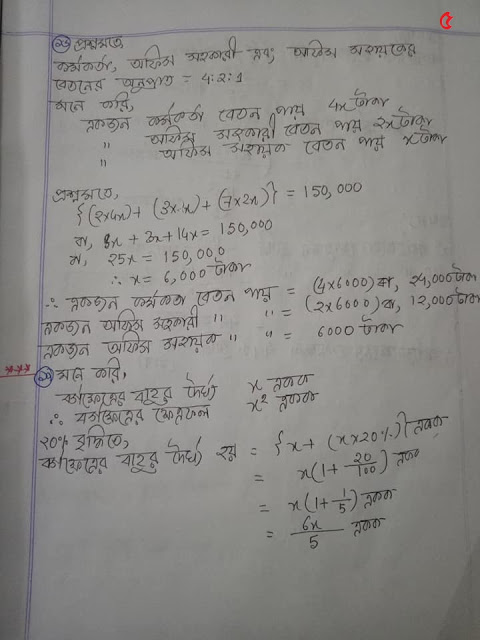 ৫
২৬ প্রশ্নমতে
কর্মকর্তা, অফিস সহকারী এবং অফিস সহায়কের
বেতনের অনুপাত = 4:2:1
মনে করি,
একজন কর্মকর্তা বেতন পায় 4x টাকা
" অফিস সহকারী বেতন পায় 2x টাকা
" অফিস সহায়ক বেতন পায় x টাকা
প্রশ্নমতে,
{(2x4x) + (3x.x) + (7x2x)} = 150,000
বা, 8x + 3x + 14x = 150,000
বা, 25x = 150,000
∴ x = 6,000 টাকা
∴ একজন কর্মকর্তা বেতন পায় = (4x6000) বা, 24,000 টাকা
একজন অফিস সহকারী " " = (2x6000) বা, 12,000 টাকা
একজন অফিস সহায়ক " " = 6000 টাকা
মনে করি,
বর্গক্ষেত্রের বাহুর দৈর্ঘ্য x একক
∴ বর্গক্ষেত্রের ক্ষেত্রফল x² একক
২০% বৃদ্ধিতে,
বর্গক্ষেত্রের বাহুর দৈর্ঘ্য হয় = {x + (x x 20%)} একক
= x(1 + 20/100) একক
= x(1 + 1/5) একক
= 6x/5 একক